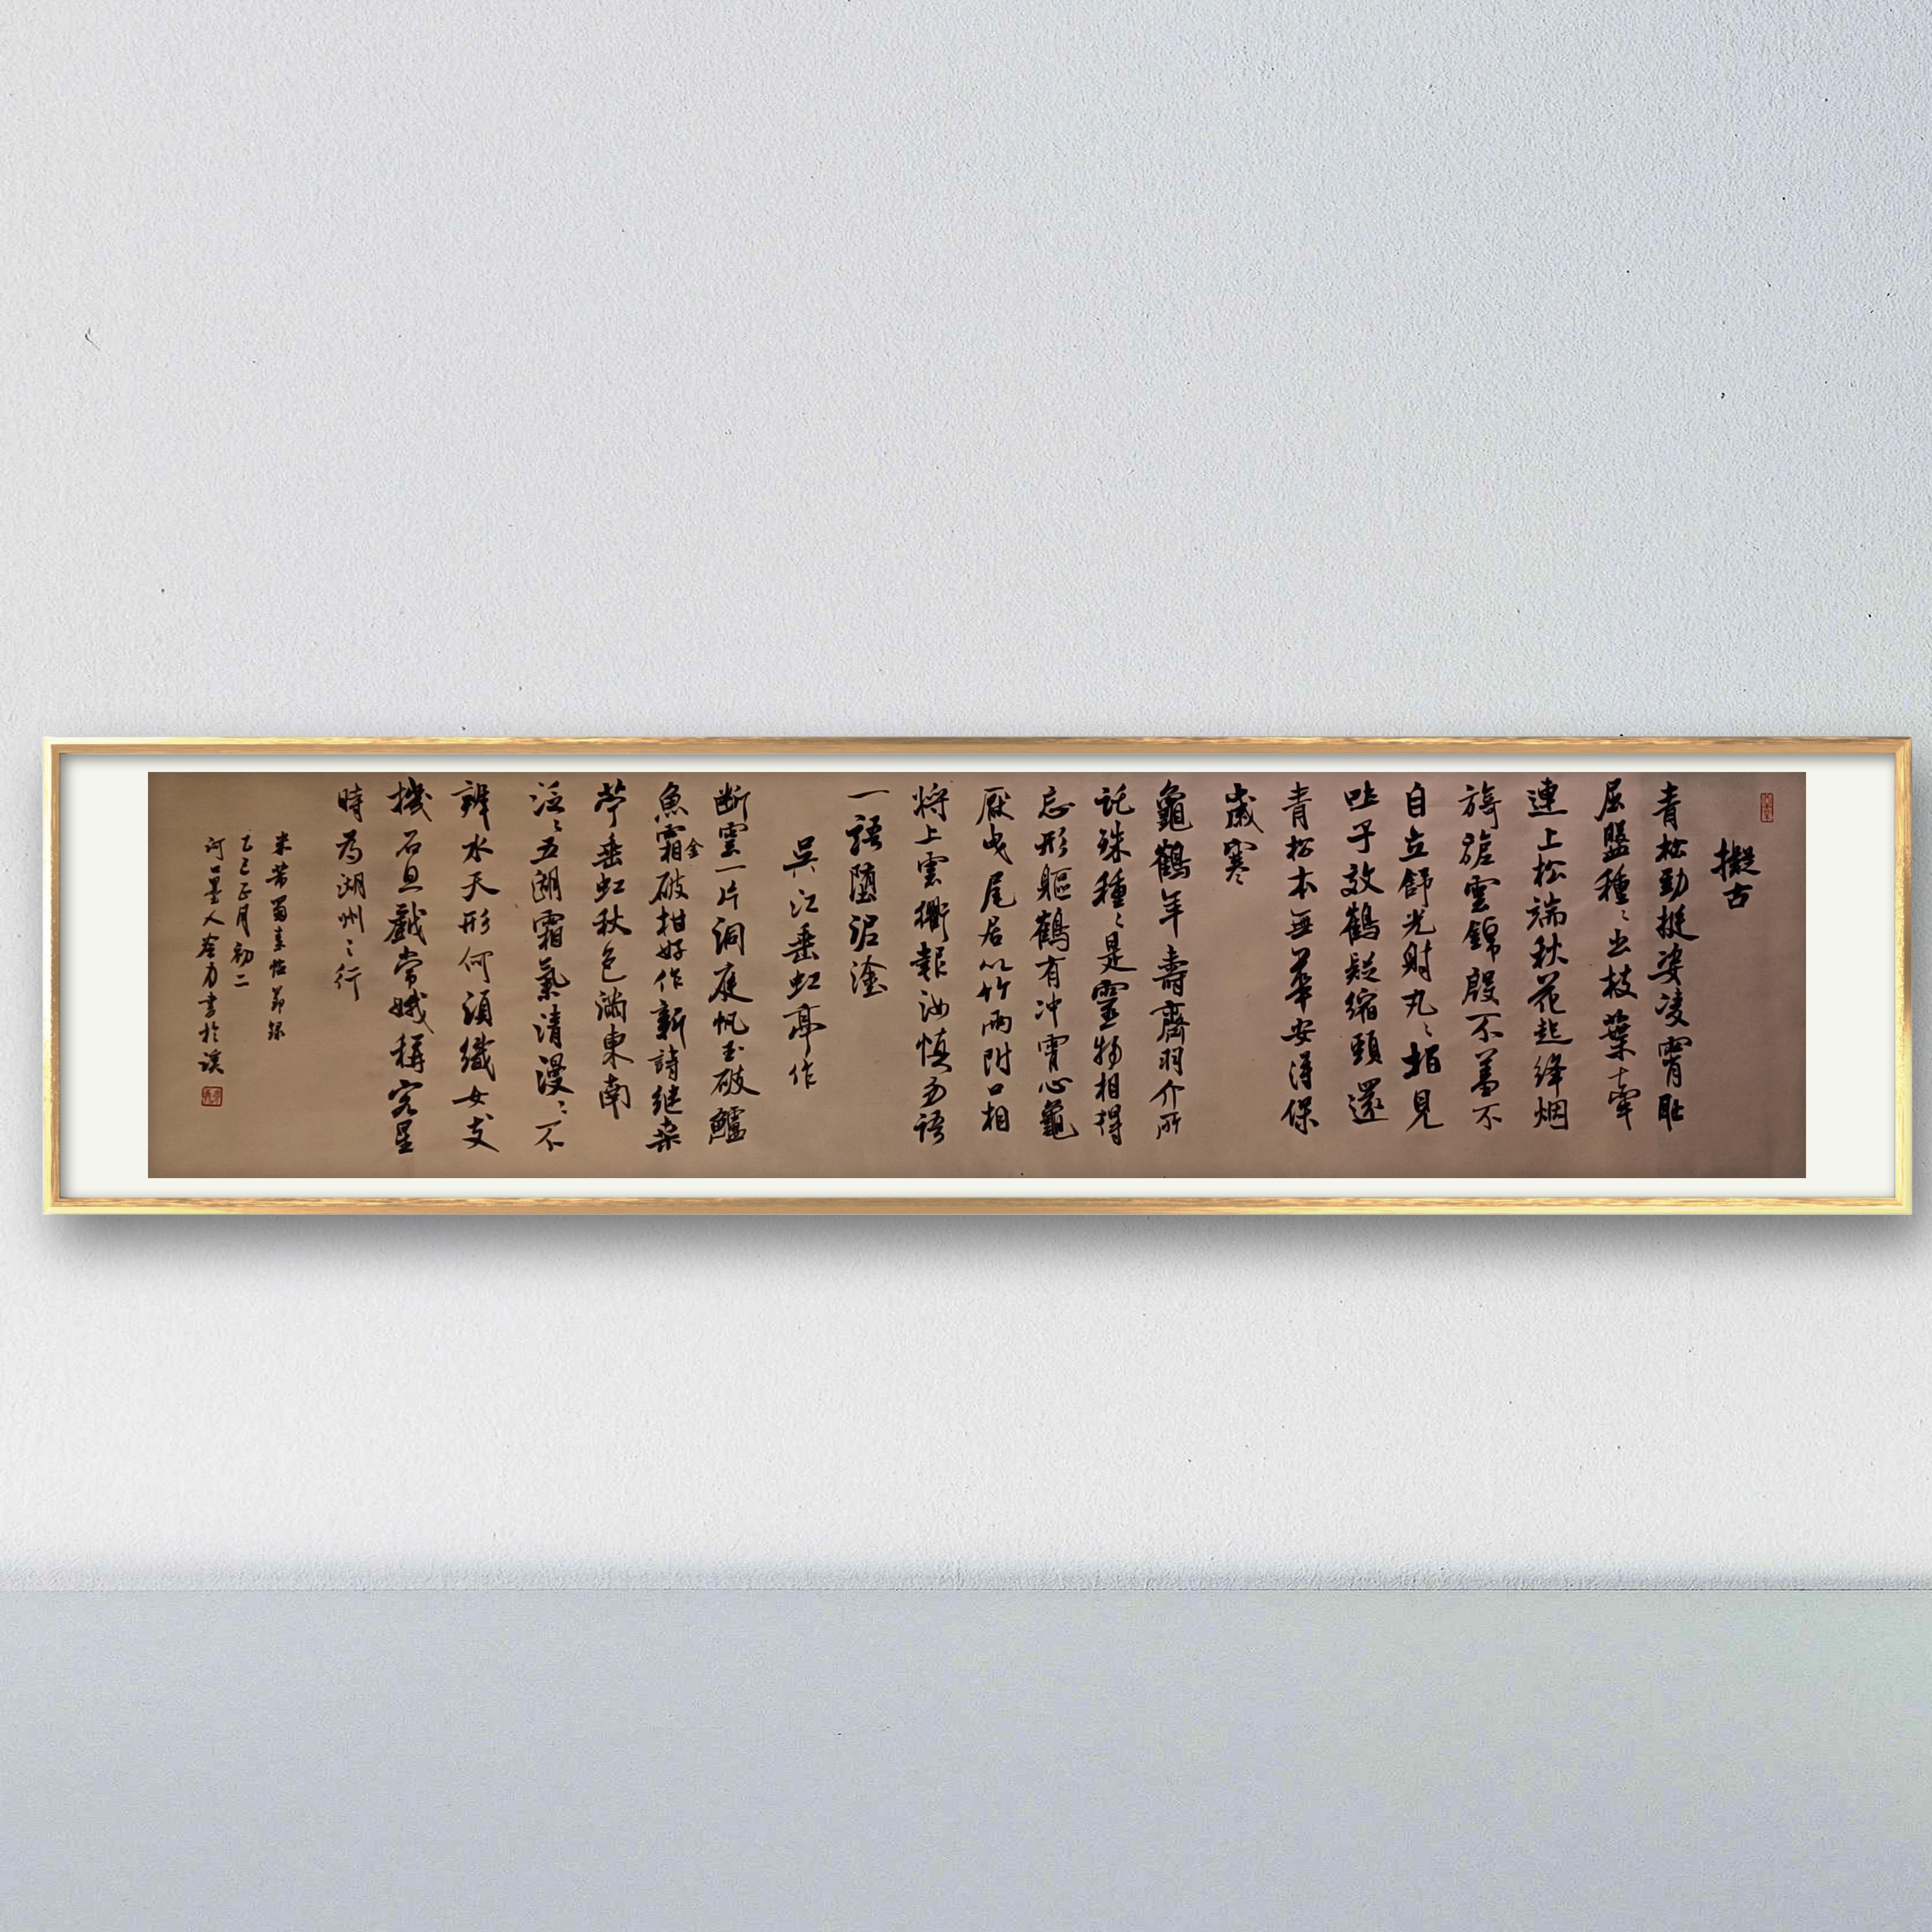 擬古
青松勁挺姿凌霄恥
屈盤種〻出枝葉牽
連上松端秋花起絳烟
旖旎雲錦殷不羞不
自立舒光射丸〻柏見
吐子效鶴疑縮頸還
青松本無華安得保
歲寒
龜鶴年壽齊羽介所
託殊種〻是靈物相得
忘形軀鶴有冲霄心龜
厭曳尾居以竹兩附口相
将上雲衢報汝慎勿語
一語墮泥塗
吳江垂虹亭作
断雲一片洞庭帆玉破鱸
魚霜金破柑好作新詩继桑
苧垂虹秋色滿東南
泛〻五湖霜氣清漫〻不
辨水天形何須織女支
機石且戲常娥稱客星
時為湖州〻行
米芾蜀素帖節録
乙巳正月初二
墨人書於溪